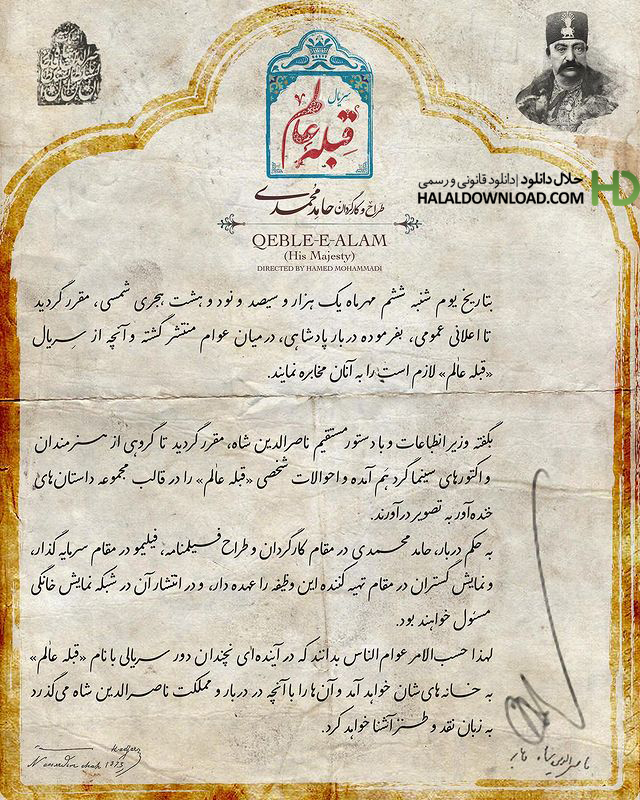 سریال
قبله عالم
حلال دانلود | دانلود قانونی و رسمی
HALALDOWNLOAD.COM
HD
طراح و کارگردان حامد محمدی
QEBLE-E-ALAM
(His Majesty)
DIRECTED BY HAMED MOHAMMADI
بتاریخ یوم شنبه ششم مهرماه یک هزار و سیصد و نود و هشت هجری شمسی، مقرر گردید
تا اعلانی عمومی، بفرموده دربار پادشاهی، در میان عوام منتشر گشته و آنچه از سریال
«قبله عالم» لازم است را به آنان مخابره نمایند.
بگفته وزیر انطباعات و با دستور مستقیم ناصرالدین شاه، مقرر گردید تا گروهی از هنرمندان
و اکتورهای سینما گرد هم آمده و احوالات شخصی «قبله عالم» را در قالب مجموعه داستان‌های
خنده‌آور به تصویر درآورند.
به حکم دربار، حامد محمدی در مقام کارگردان و طراح فیلمنامه، فیلیمو در مقام سرمایه گذار،
و نمایش گستران در مقام تهیه کننده این وظیفه را عهده دار، و در انتشار آن در شبکه نمایش خانگی
مسئول خواهند بود.
لهذا حسب‌الامر عوام الناس بدانند که در آینده‌ای نچندان دور سریالی با نام «قبله عالم»
به خانه‌های‌شان خواهد آمد و آن‌ها را با آنچه در دربار و مملکت ناصرالدین شاه می‌گذرد
به زبان نقد و طنز آشنا خواهد کرد.
Kadjar
Nassereddin chah 1273
ناصرالدین شاه